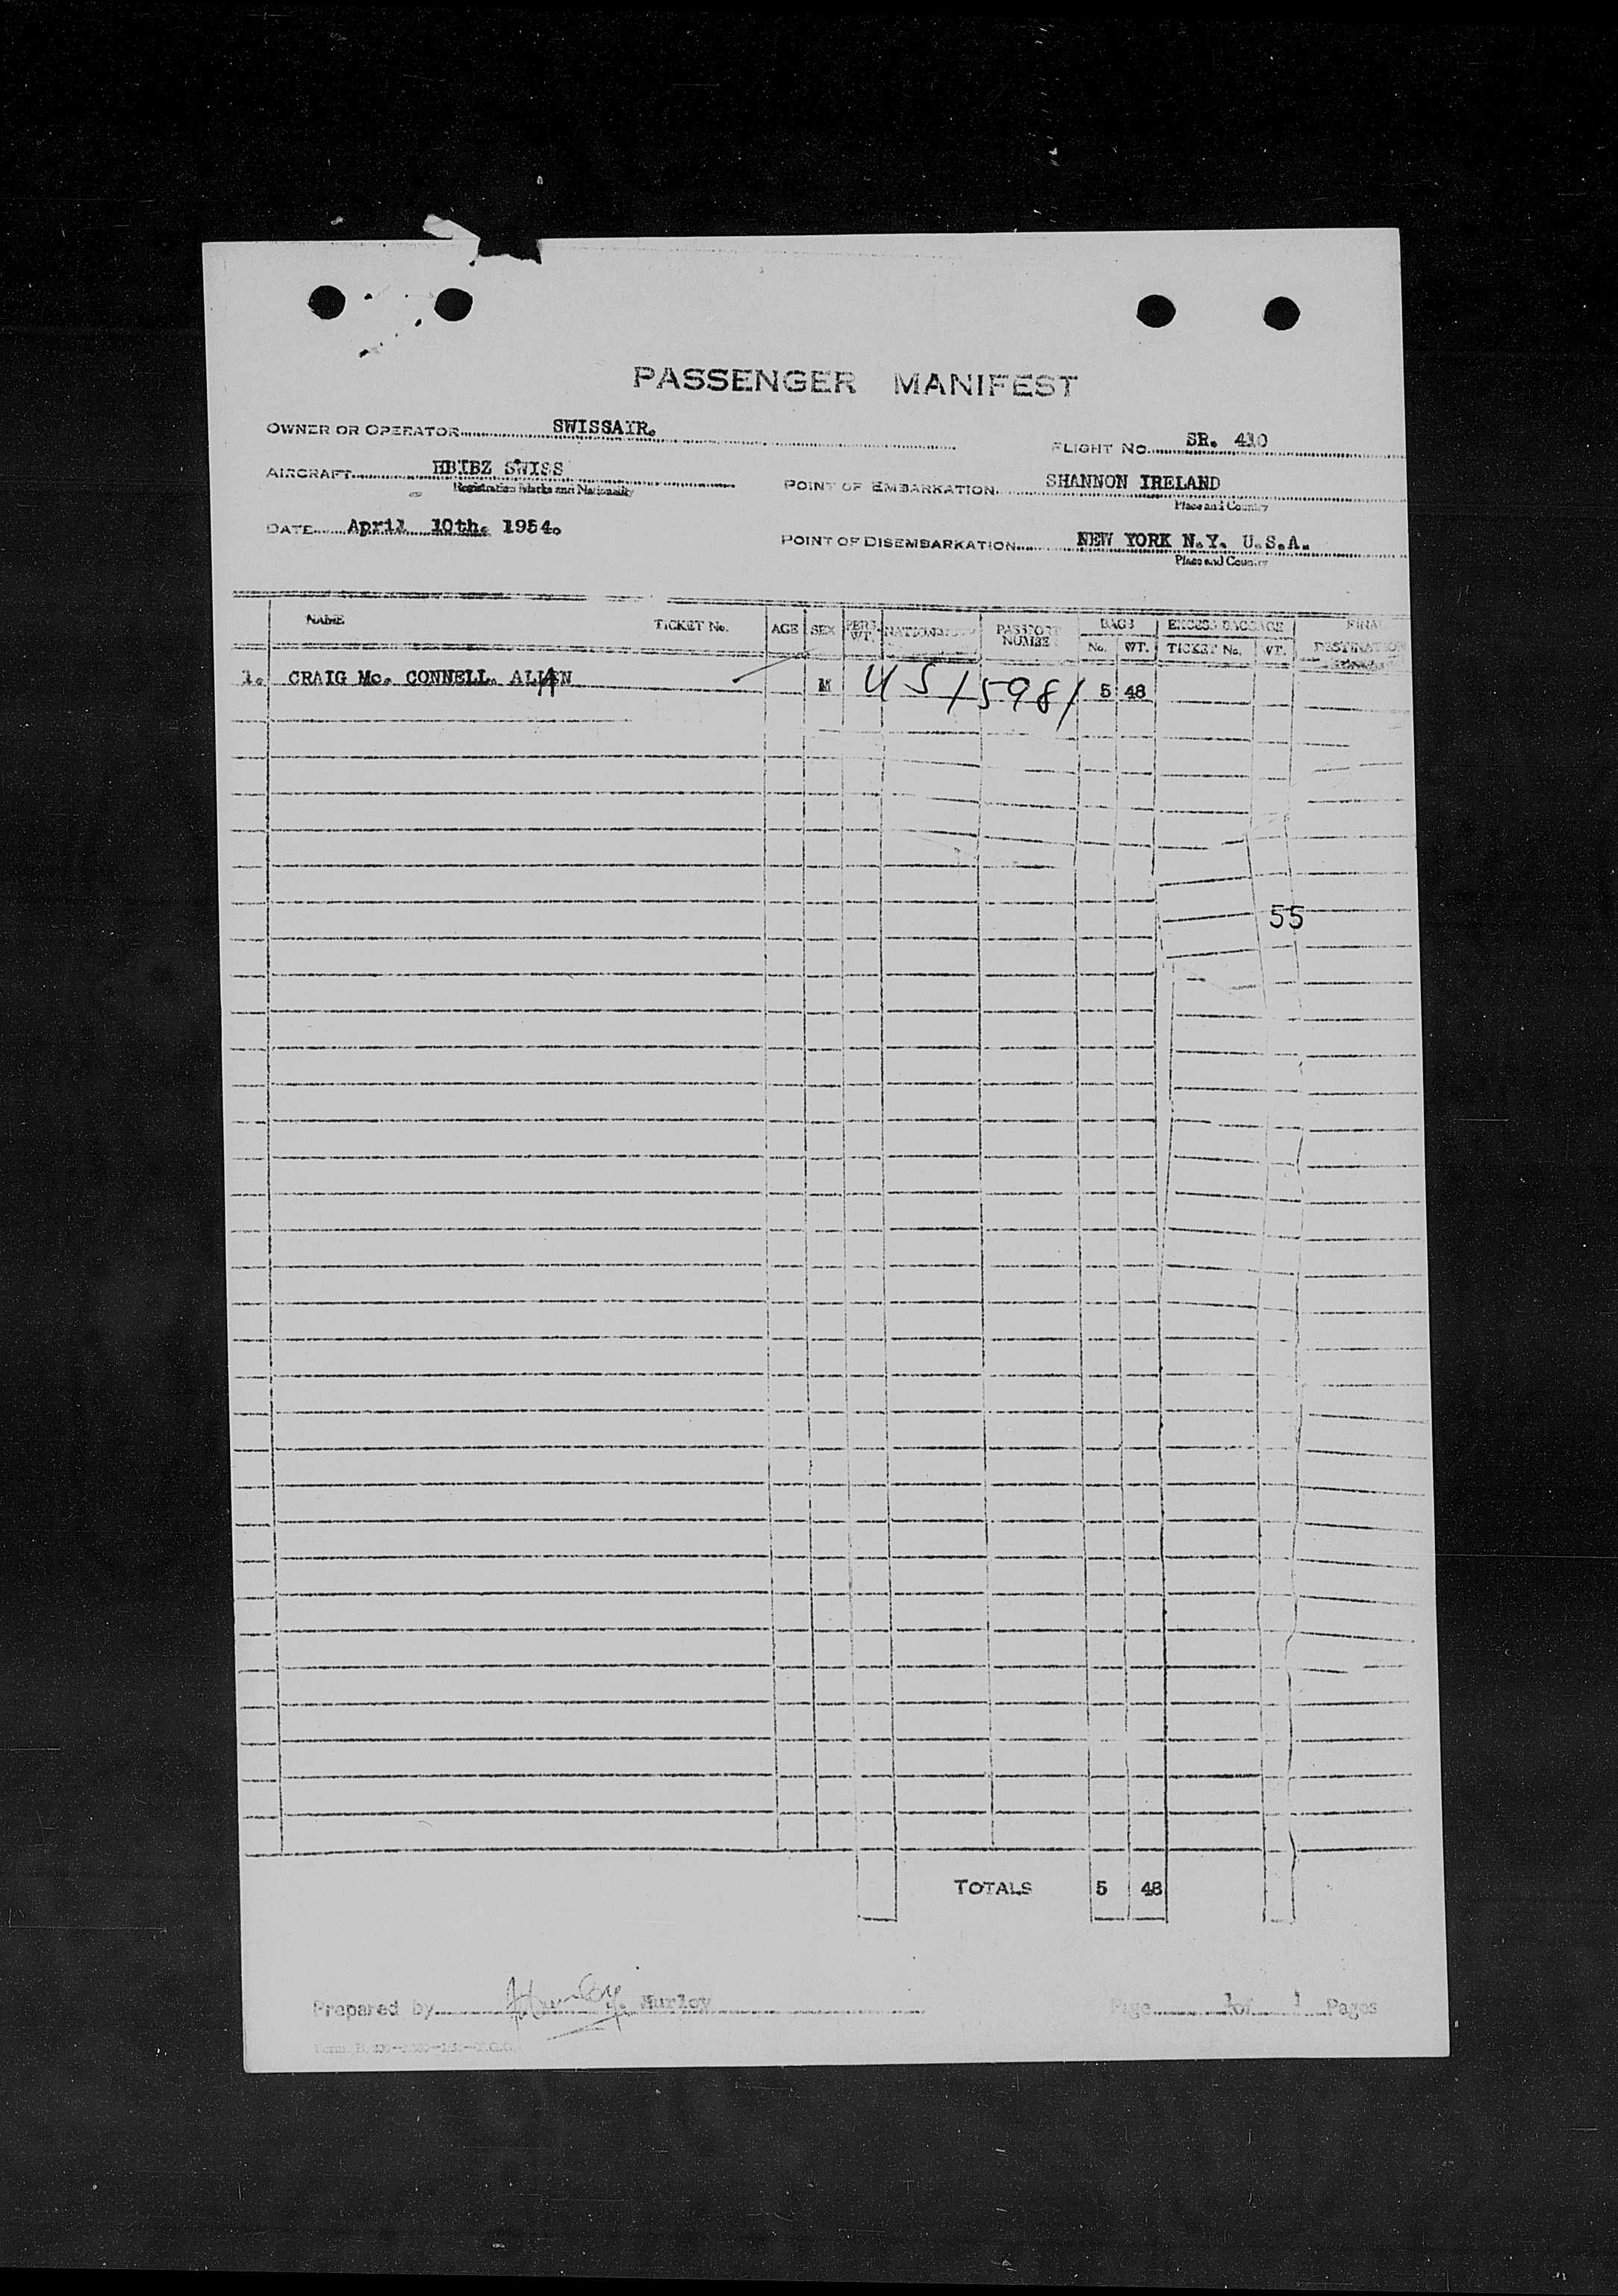 PASSENGER MANIFEST
OWNER OR OPERATOR SWISSAIR.
FLIGHT NO. SR. 410
AIRCRAFT HBIBZ SWISS
Registration Marks and Nationality
POINT OF EMBARKATION SHANNON IRELAND
Place and Country
DATE April 10th. 1954.
POINT OF DISEMBARKATION NEW YORK N.Y. U.S.A.
Place and Country
NAME TICKET No. AGE SEX PERS. WT. PASSPORT NUMBER BAGS No. WT. EXCESS BAGGAGE TICKET No. WT. FINAL DESTINATION
1. CRAIG Mc. CONNELL. ALLAN M US 15981 5 48
55
TOTALS 5 48
Prepared by Hurley
Page 1 of 1 Pages